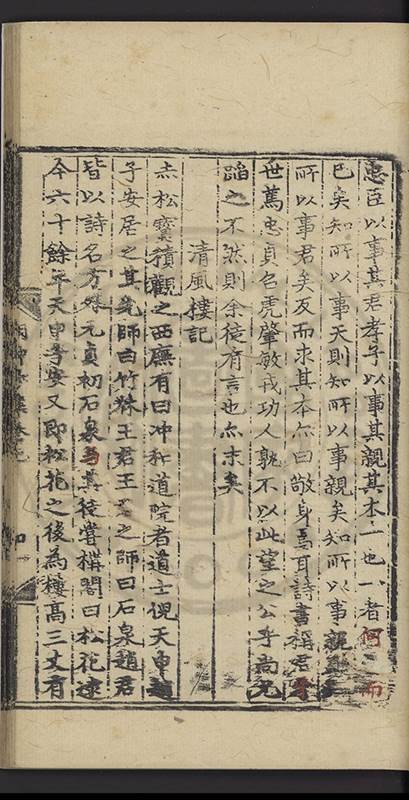 忠臣以事其君孝子以事其親其本一也一者何一而
已矣知所以事天則知所以事親矣知所以事親
所以事君矣反而求其本亦曰敬身焉耳詩書稱
世篤忠貞召虎肇敏戎功人孰不以此望之公乎尚允
蹈之不然則余徒有言也亦末矣
清風樓記
赤松寶積觀之西廡有曰冲和道院者道士倪天申趙
子安居之其先師曰竹牀王君王君之師曰石泉趙君
皆以詩名方外元貞初石泉與其徒嘗構閣曰松花逮
今六十餘年天申子安又即松花之後為樓高三丈有